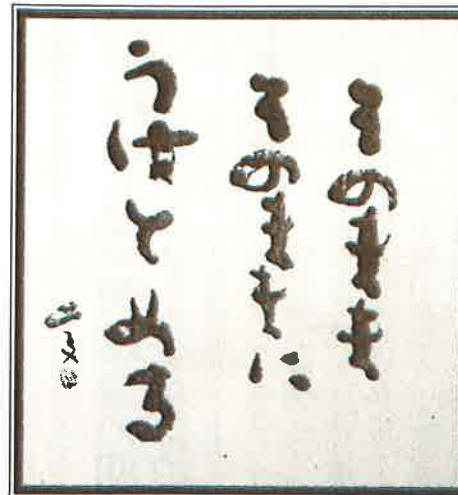 そのまま
そのまま
うけとめる